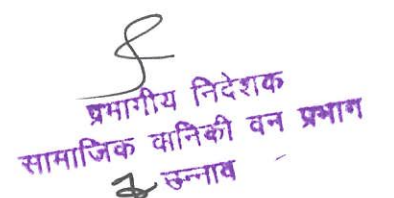 प्रभागीय निदेशक
सामाजिक वानिकी वन प्रभाग
उन्नाव